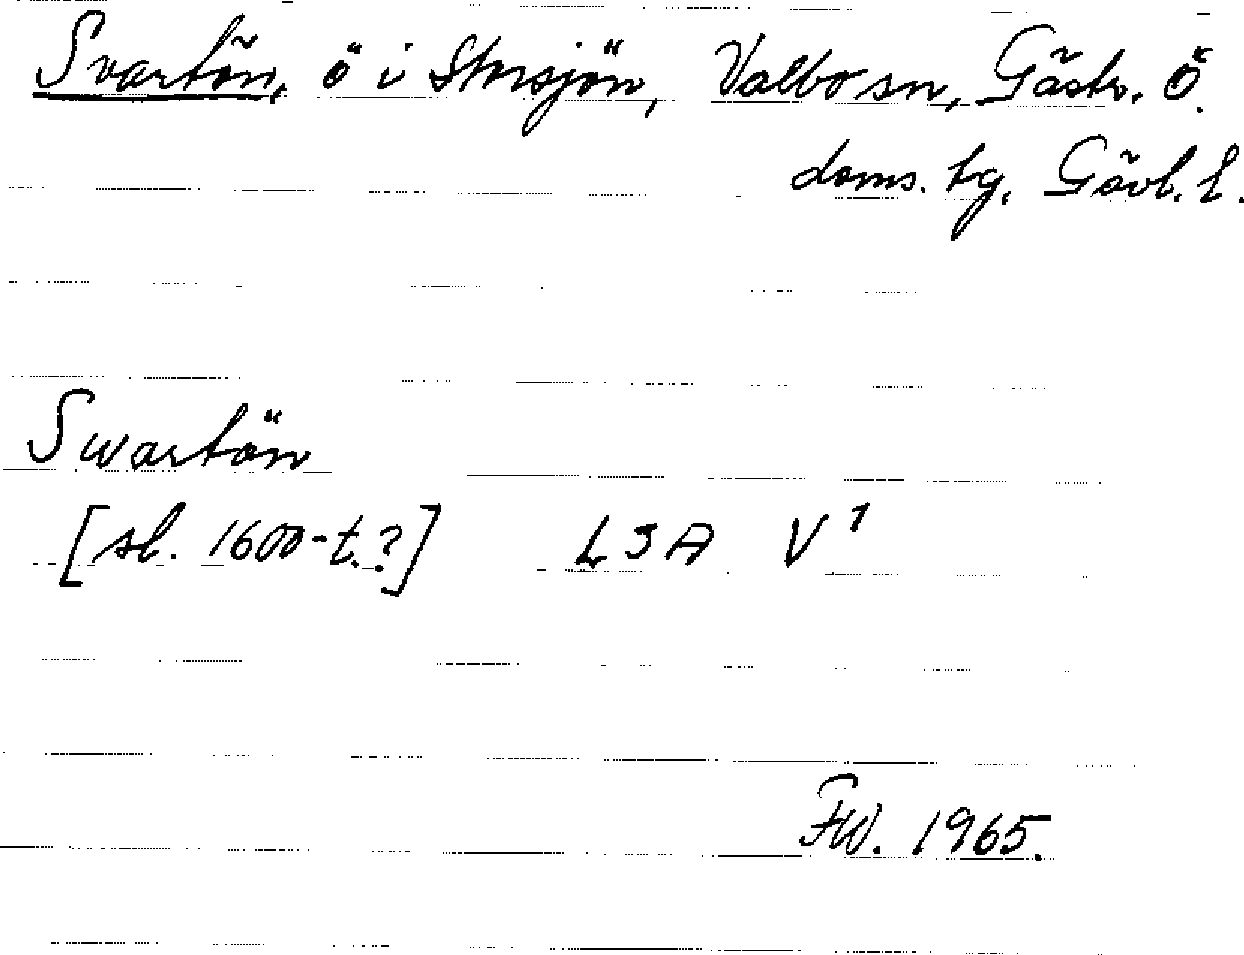 Svartön, ö i Storsjön, Valbo sn, Gästr. Ö.
doms. tg, Gävl. l.
Swartön
[sl. 1600-t.?] LSA V1
FW. 1965.